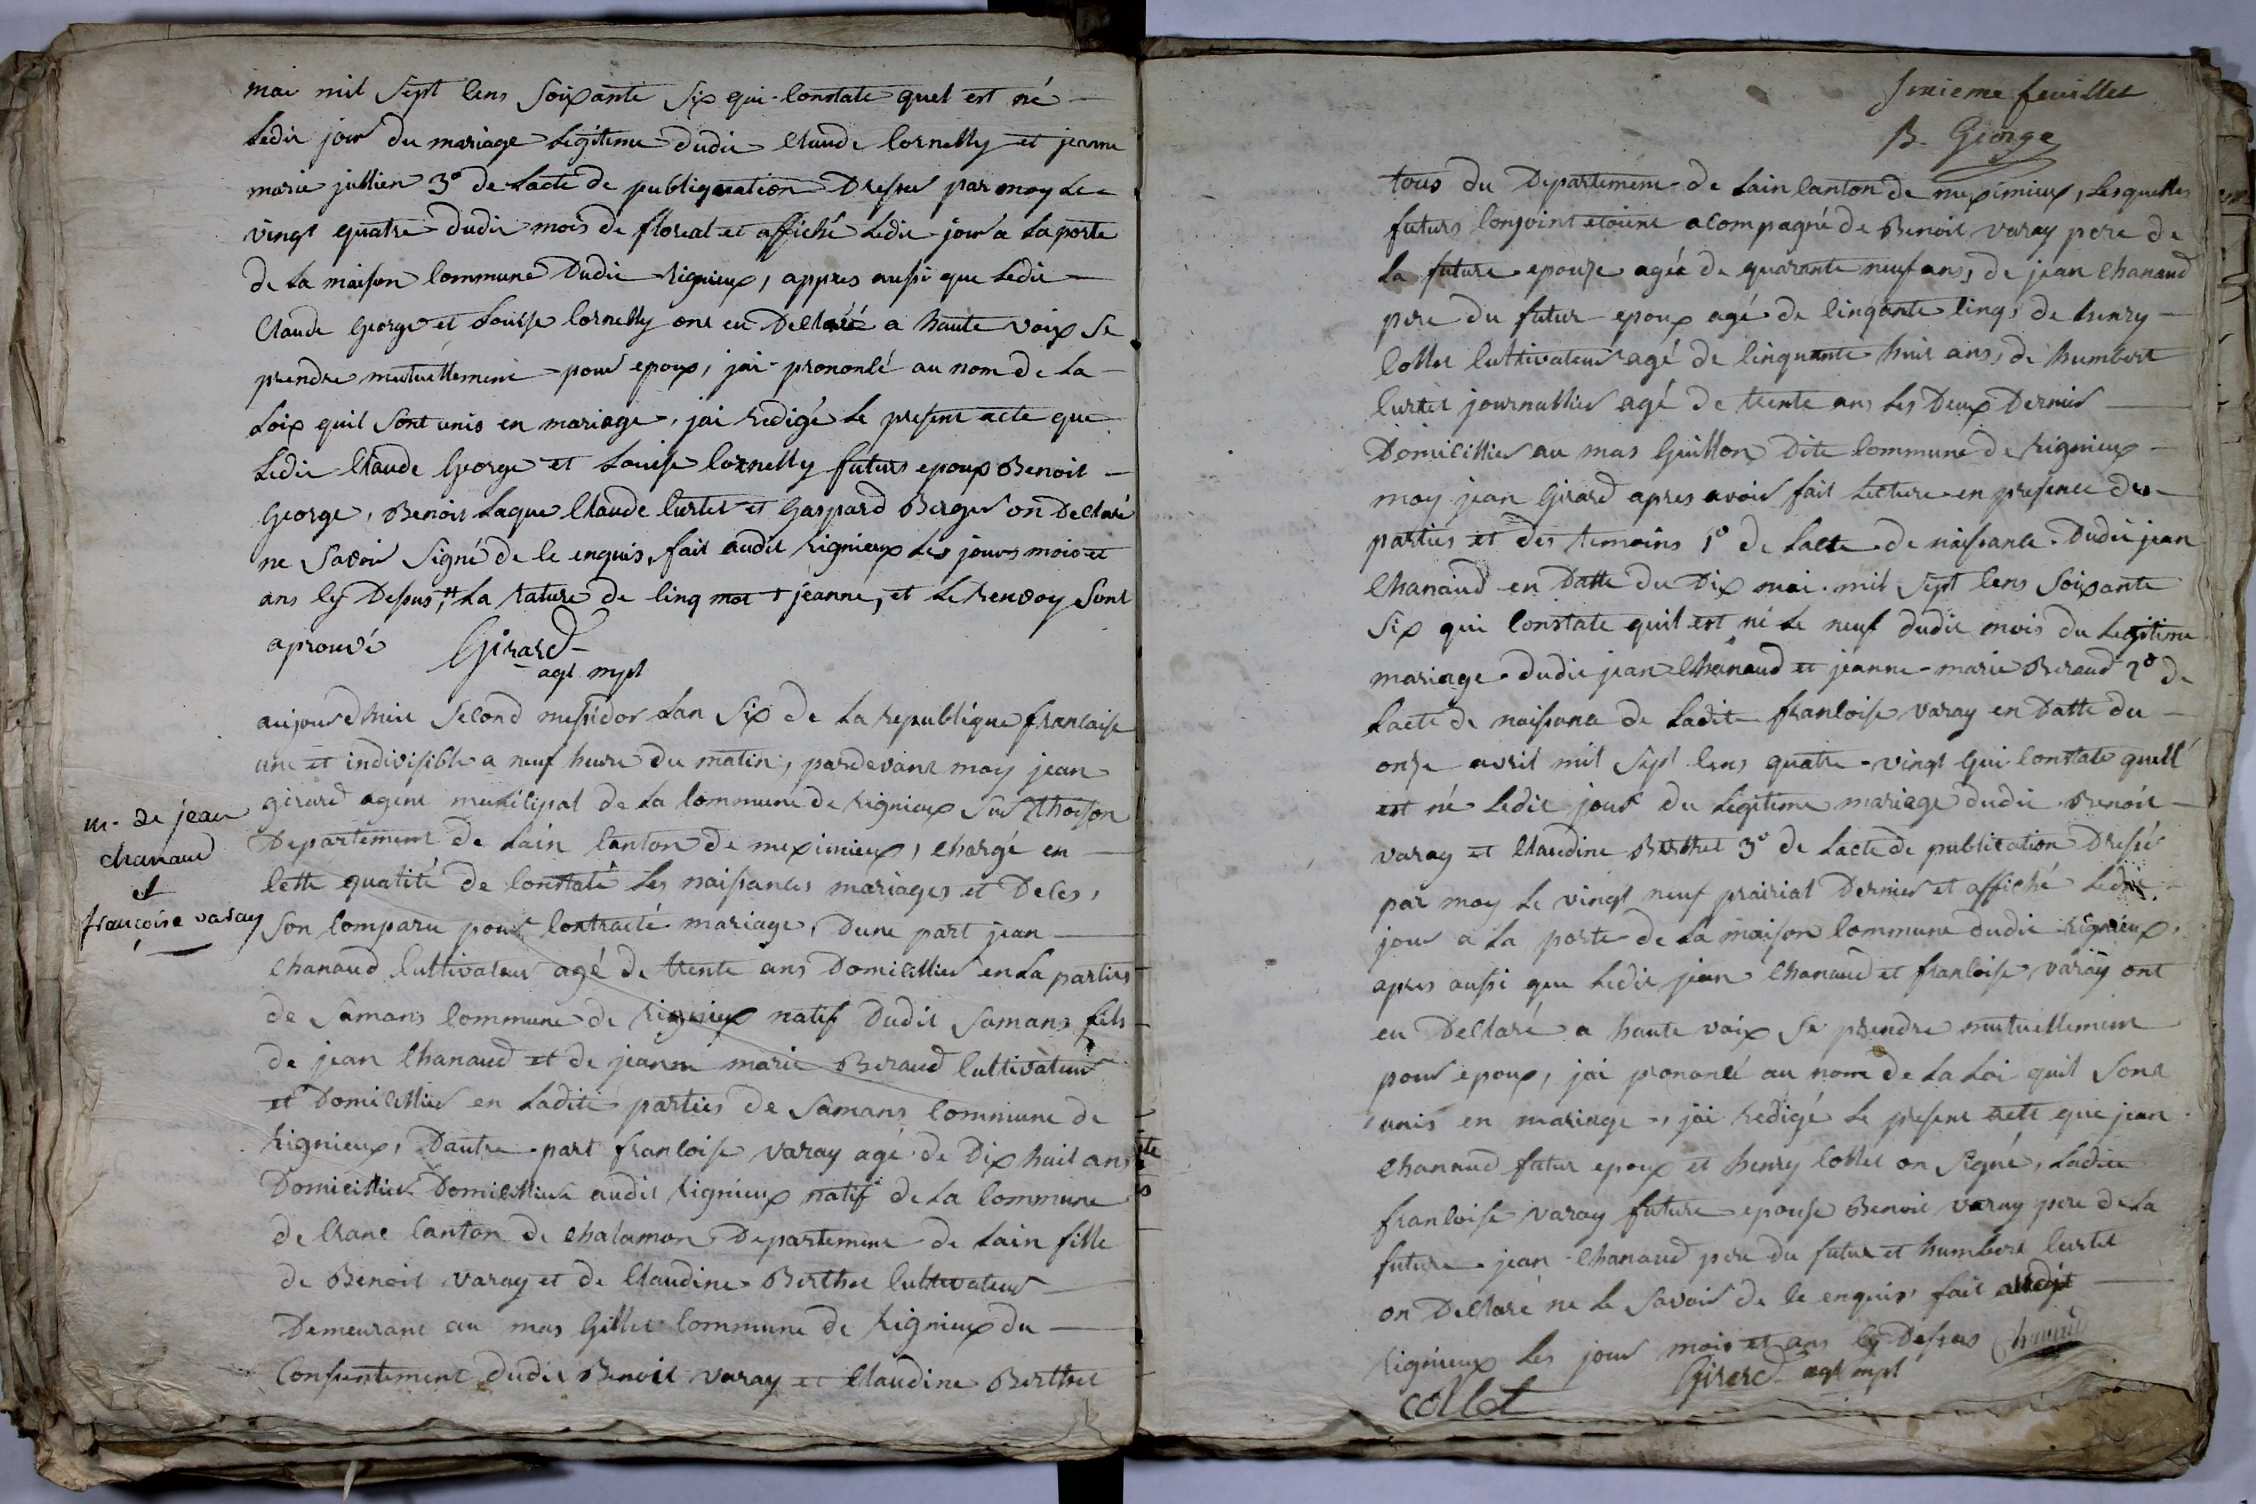 mai mil Sept Cens Soixante Six qui Constate quel est né
Ledit jour du mariage Legitime dudit Claude Cornelly et jeanne
marie jullien 3° de Lacte de publiquation Dressé par moy Le
vingt quatre dudit mois de floreal et affiché Ledit jour a La porte
de La maison Commune Dudit Rignieux, appres aussi que Ledit
Claude George et Louise Cornelly ont eu Declaré a haute voix Se
prendre mutuellement pour epoux, jai prononcé au nom de La
Loix quil Sont unis en mariage, jai Redigé Le present acte que
Ledit Claude George et Louise Cornelly futurs epoux Benoit
George, Benoit Laque Claude Curtet et Gaspard Berger on Declaré
ne Savoir Signé de Ce enquis, fait audit Rignieux Les jours mois et
ans Cy Dessus, La Rature de Cinq mot + jeanne, et Le Renvoy Sont
aprouvé Girard
agt mpl
aujourdhuit Second messidor Lan Six de La Republique francaise
une et indivisible a neuf heure du matin, pardevant moy jean
girard agent municipal de La Commune de Rignieux Sur Thoison
m. de jean
chanaud
et
françoise varay
Departement de Lain Canton de meximieux, Chargé en
Cette qualité de Constaté Les naissances mariages et Deces,
Son Comparu pour Contracté mariage, Dune part jean
Chanaud Cultivateur agé de trente ans Domicillier en La parties
de Samans Commune de Rignieux natif Dudit Samans fils
de jean Chanaud et de jeanne marie Beraud Cultivateur
et Domicillier en Ladite parties de Samans Commune de
Rignieux, Dautre part francoise varay agé de Dix huit ans
Domicillier Domicillier audit Rignieux natif de La Commune
de Crane Canton de Chalamon Departement de Lain fille
de Benoit varay et de Claudine Berthet Cultivateur
Demeurant au mas Gillet Commune de Rignieux du
Consentement dudit Benoit varay et Claudine Berthet
Sixieme feuillet
B. George
tous du Departement de Lain Canton de meximieux, Lesquelles
futurs Conjoint etoient acompagné de Benoit varay pere de
La future epouze agée de quarante neuf ans, de jean Chanaud
pere du futur epoux agé de Cinqante Cinq, de henry
Collet Cultivateur agé de Cinquante huit ans, de humbert
Curtet journallier agé de trente ans Les Deux Dernier
Domicillier au mas Guillon Dite Commune de Rignieux
moy jean Girard apres avoir fait Lecture en presence des
parties et des temoins 1° de Lacte de naissance Dudit jean
Chanaud en Datte du Dix mai mil Sept Cens Soixante
Six qui Constate quil est né Le neuf dudit mois du Legitime
mariage dudit jean Chanaud et jeanne marie Beraud 2° de
Lacte de naissance de Ladite francoise varay en Datte du
onze avril mil Sept Cens quatre vingt qui Constate quell
est né Ledit jour du Legitime mariage dudit Benoit
varay et Claudine Berthet 3° de Lacte de publication Dressé
par moy Le vingt neuf prairial Dernier et affiché Ledit
jour a La porte de La maison Commune dudit Rignieux,
apres aussi que Ledit jean Chanaud et francoise varay ont
eu Declaré a haute voix Se prendre mutuellement
pour epoux, jai prononcé au nom de La Loi quil Sont
unis en mariage, jai Redigé Le present acte que jean
Chanaud futur epoux et henry Collet on Signé, Ladite
francoise varay future epouse Benoit varay pere de La
future jean Chanaud pere du futur et humbert Curtet
on Declaré ne Le Savoir de Ce enquis, fait audit
Rignieux Les jour mois et ans Cy Dessus
Girard agt mpl
collet